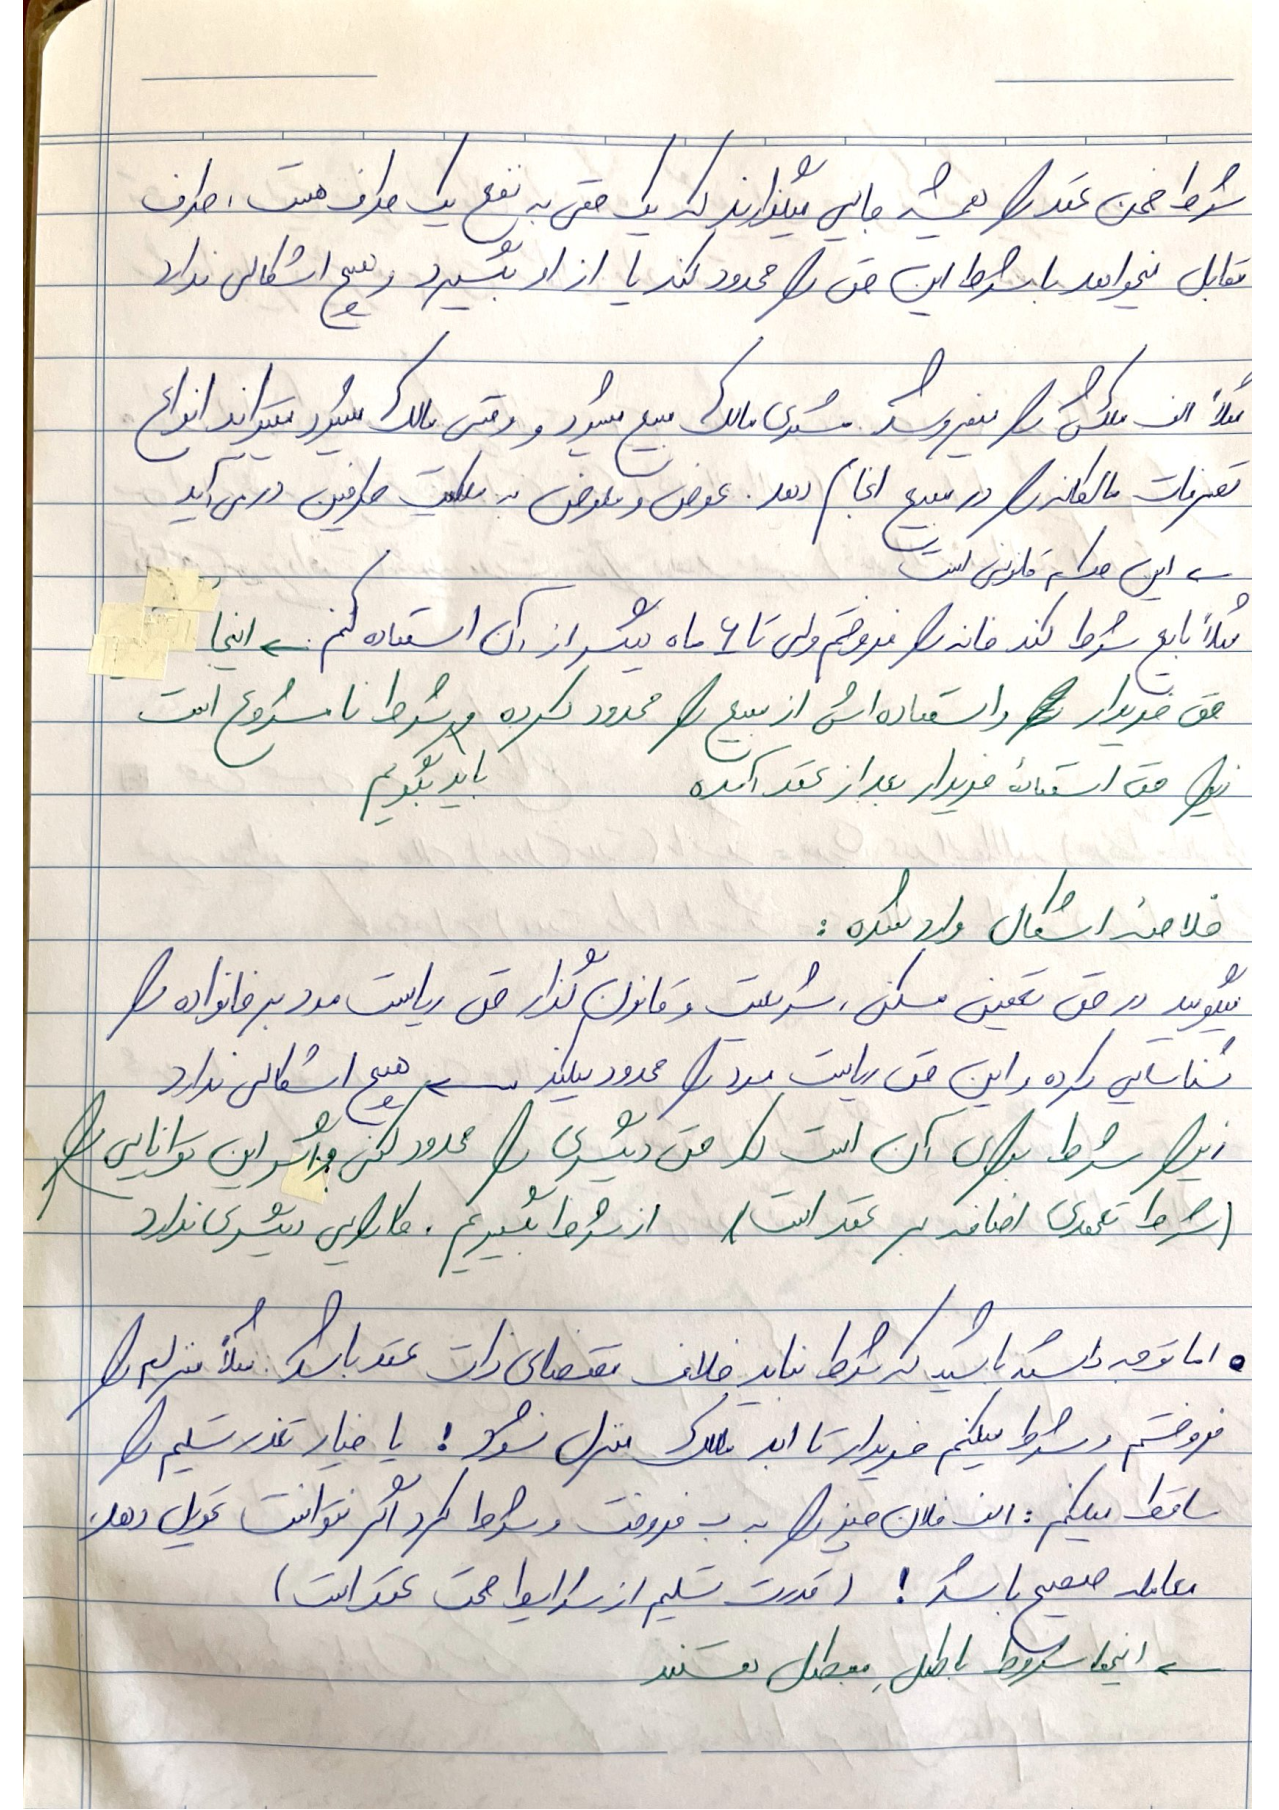 شرط ضمن عقد را همیشه جایی میگذارند که یک حقی به نفع یک طرف هست، طرف
مقابل میخواهد با شرط این حق را محدود کند یا از او بگیرد و هیچ اشکالی ندارد
مثلاً الف ملکش را میفروشد. مشتری مالک مبیع میشود و وقتی مالک میشود میتواند انواع
تصرفات مالکانه را در مبیع انجام دهد. عوض و معوض به ملکیت طرفین در می‌آید
← این حکم قانونی است
مثلاً بایع شرط کند خانه را فروختم ولی تا ۶ ماه دیگر از آن استفاده کنم. ← اینجا
حق خریدار و استفاده‌اش از مبیع را محدود کرده و شرط نامشروع است
زیرا حق استفادهٔ خریدار بعد از عقد آمده باید بگویم
خلاصهٔ اشکال وارد شده :
میگویید در حق تعیین مسکن، شریعت و قانون گذار حق ریاست مرد بر خانواده را
شناسایی کرده و این حق ریاست مرد را محدود میکند ← هیچ اشکالی ندارد
زیرا شرط برای آن است که حق دیگری را محدود کنی و اگر این توانایی را
(شرط تعهدی اضافه بر عقد است) از شرط بگیریم. کارایی دیگری ندارد
• اما توجه داشته باشید که شرط نباید خلاف مقتضای ذات عقد باشد. مثلاً منزلم را
فروختم و شرط میکنم خریدار تا ابد مالک منزل نشود! یا خیار تعذر تسلیم را
ساقط میکنم : الف فلان چیز را به ب فروخت و شرط کرد اگر نتوانست تحویل دهد،
معامله صحیح باشد! (قدرت تسلیم از شرایط صحت عقد است)
← اینجا شروط باطلِ مبطل هستند